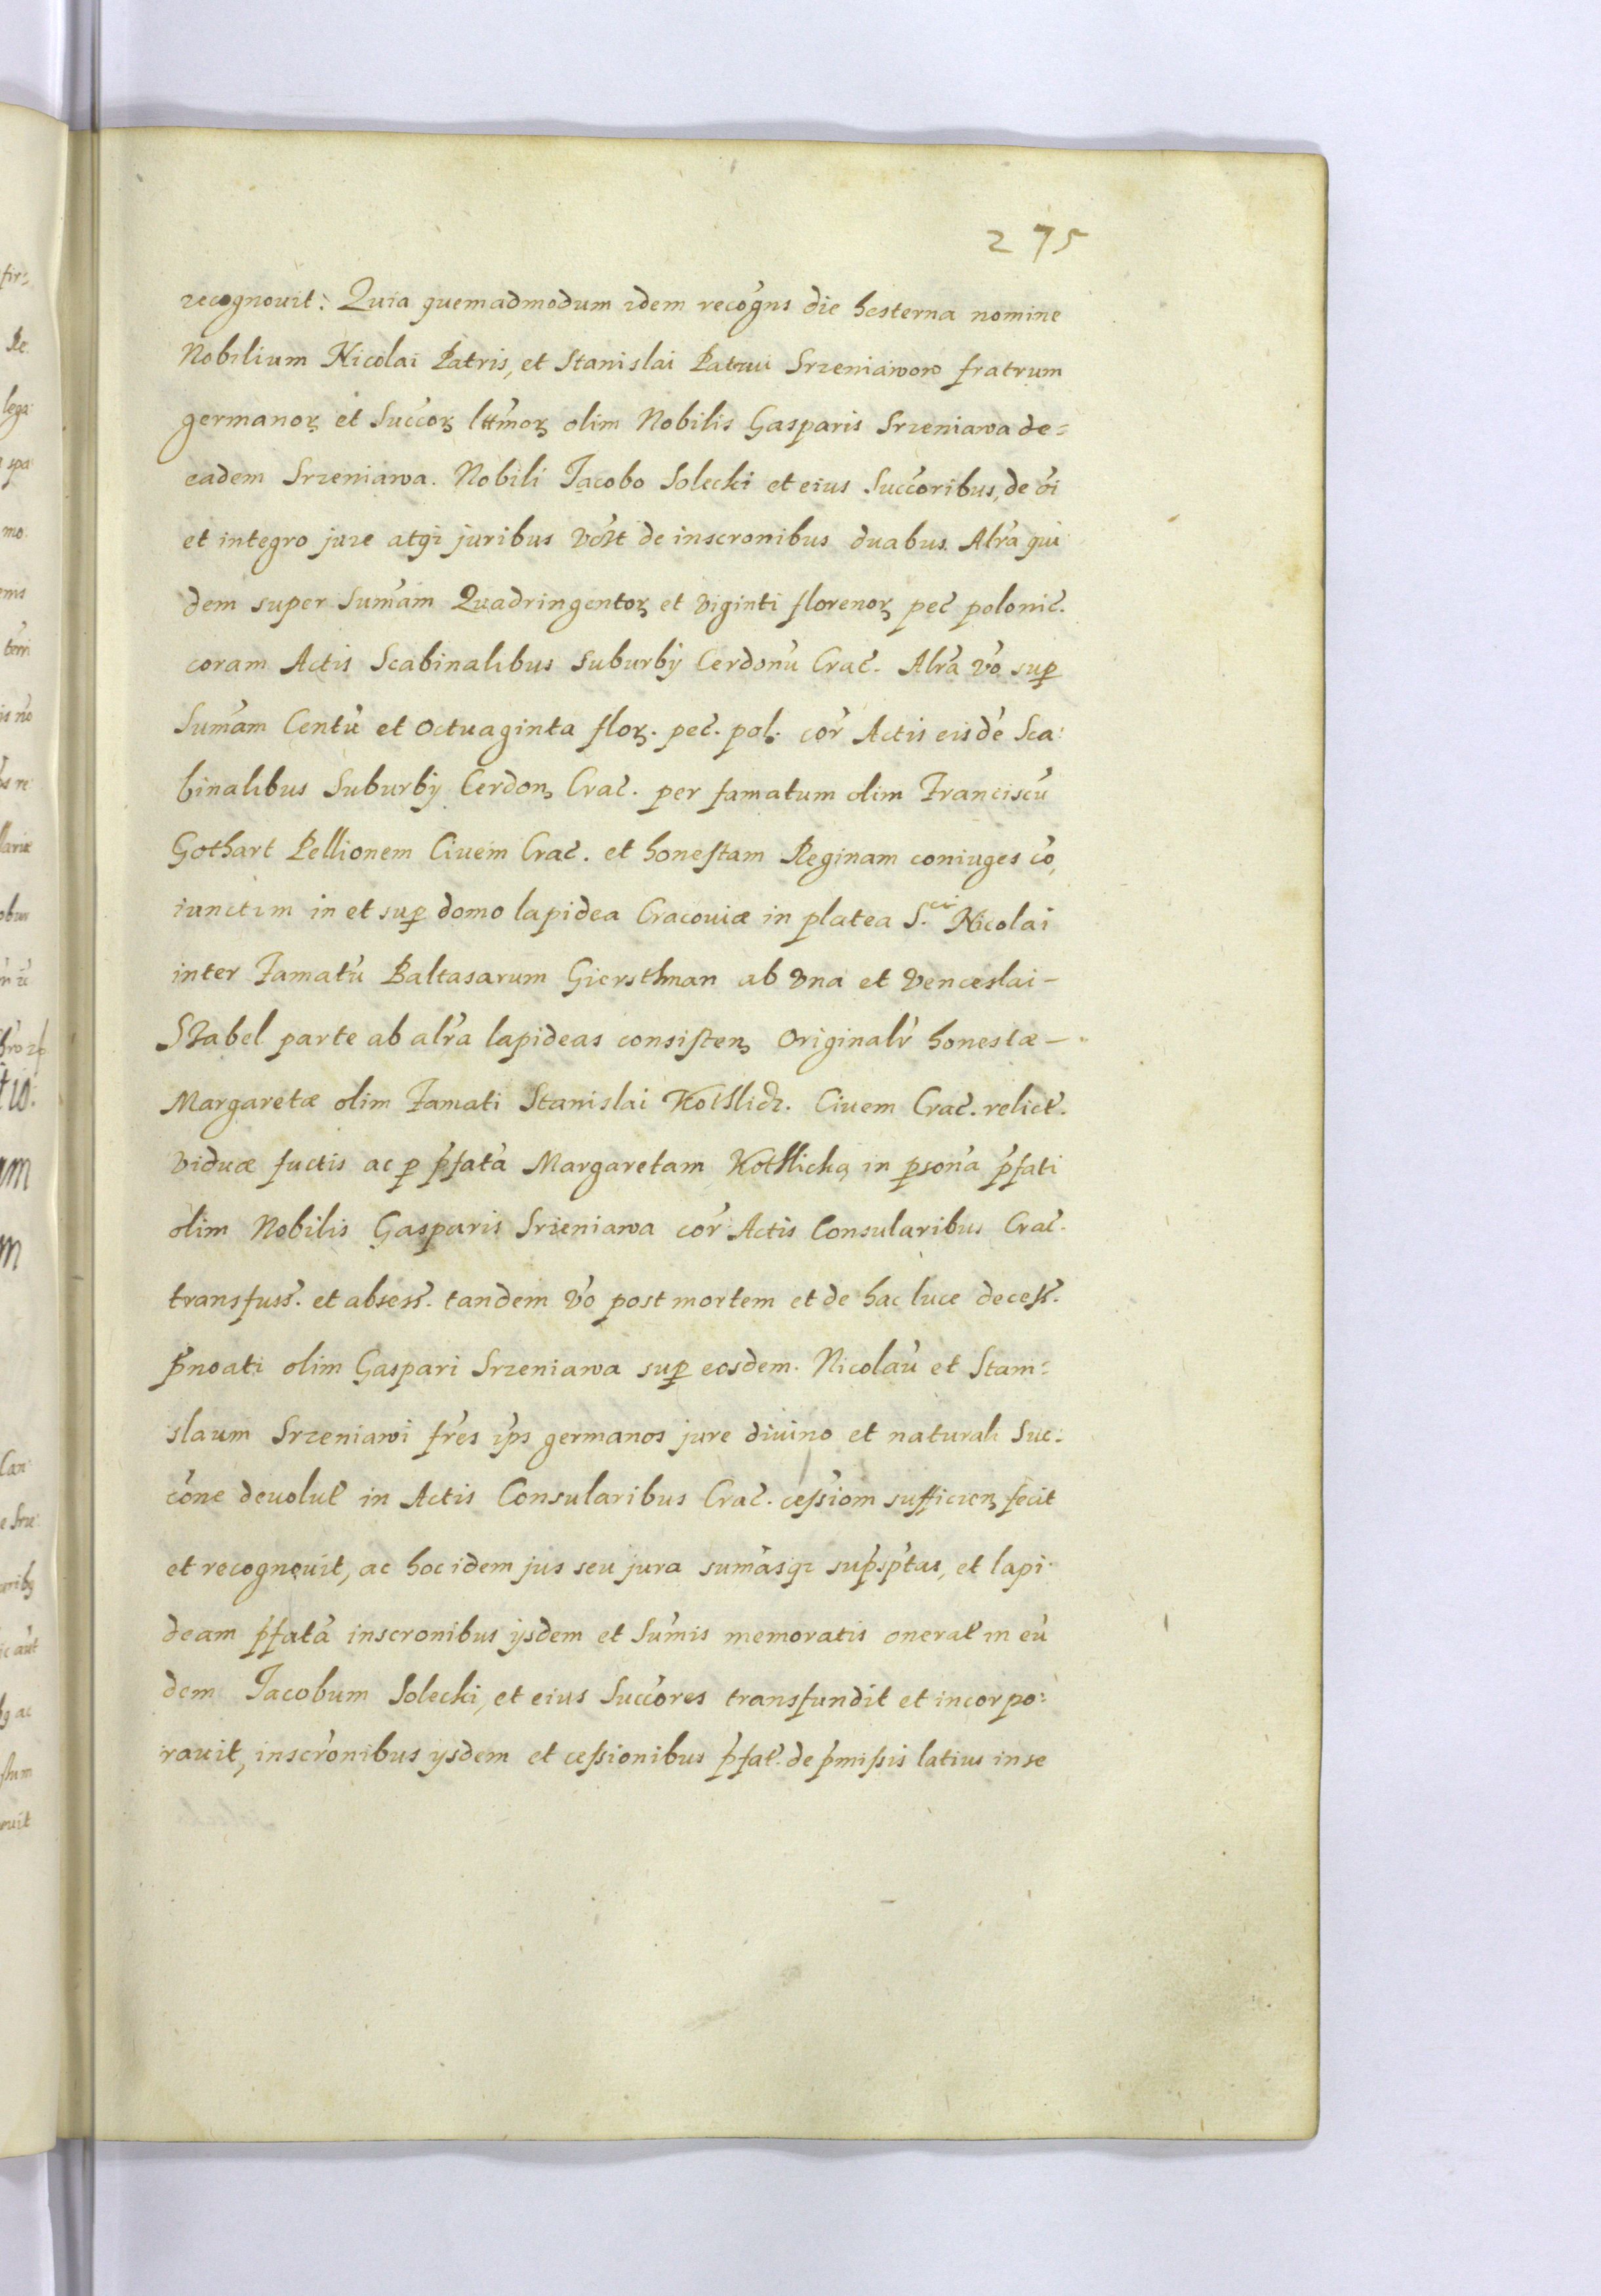 275
recognouit: Quia quemadmodum idem recógns die hesterna nomine
Nobilium Nicolai Patris, et Stanislai Patrui Srzeniawow fratrum
germanoꝝ et Succ̃oꝝ lttm̃oꝝ olim Nobilis Gasparis Srzeniawa de=
eadem Srzeniawa. Nobili Jacobo Solecki et eius Succ̃oribus, de õi
et integro jure atqꝫ juribus de inscronibus duabus. Alr̃a qui
dem super Sum̃am Quadringentoꝝ et viginti florenoꝝ pec̃ polonic̃.
coram Actis Scabinalibus Suburbÿ Cerdonũ Crac̃. Alr̃a ṽo suꝑ
Sum̃am Centũ et octuaginta floꝝ. pec̃. pol. cor̃ Actis eisdẽ Sca:
binalibus Suburbÿ Cerdonꝫ Crac̃. per famatum olim Franciscũ
Gothart Pellionem Ciuem Crac̃. et honestam Reginam coniuges cõ,
iunctim in et suꝑ domo lapidea Cracouiæ in platea S.cti Nicolai
inter Famatũ Baltasarum Giersthman ab vna et Venceslai –
Stabel parte ab alr̃a lapideas consistenꝫ Originalr̃ honestæ –
Margaretæ olim Famati Stanislai Kothlick. Ciuem Crac̃. relict̃.
viduæ factis ac ꝑ p̃fatã Margaretam Kothlicką in ꝑsonã p̃fati
olim Nobilis Gasparis Srzeniawa cor̃ Actis Consularibus Crac̃.
transfuss̃. et absess̃. tandem ṽo post mortem et de hac luce decess̃.
p̃noãti olim Gaspari Srzeniawa suꝑ eosdem. Nicolaũ et Stani=
slaum Srzeniawi fr̃es ip̃s germanos jure diuino et naturali Suc:
cõne deuolut̃ in Actis Consularibus Crac̃. cessiom̃ sufficienꝫ fecit
et recognouit, ac hoc idem jus seu jura sum̃asqꝫ sup̃sp̃tas, et lapi:
deam p̃fatã inscronibus ÿsdem et Sum̃is memoratis onerat̃ in eũ
dem Jacobum Solecki, et eius Succ̃ores transfundit et incorpo:
rauit, inscr̃onibus ÿsdem et cessionibus p̃fat̃. de p̃missis latius in se